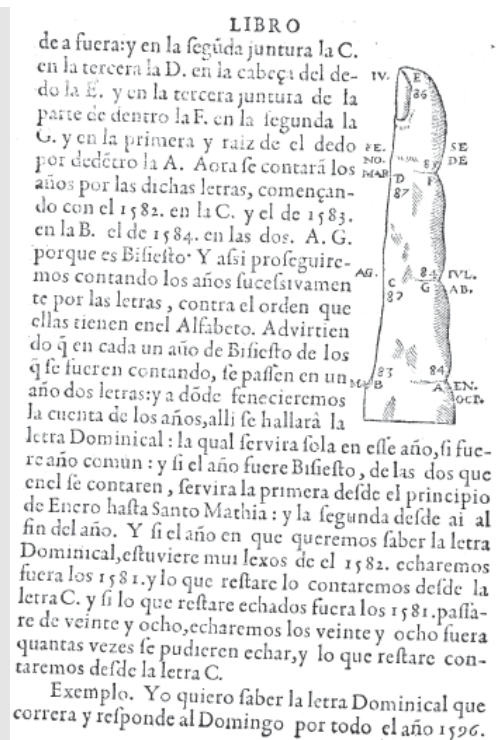 LIBRO
de a fuera:y en la ſegũda juntura la C.
en la tercera la D. en la cabeça del de-
do la E. y en la tercera juntura de la
parte de dentro la F. en la ſegunda la
G. y en la primera y raiz de el dedo
por dedẽtro la A. Aora ſe contará los
años por las dichas letras, començan-
do con el 1582. en la C. y el de 1583.
en la B. el de 1584. en las dos. A. G.
porque es Biſieſto. Y aſsi proſeguire-
mos contando los años ſuceſsivamen
te por las letras, contra el orden que
ellas tienen enel Alfabeto. Advirtien
do q̃ en cada un año de Biſieſto de los
q̃ ſe fueren contando, ſe paſſen en un
año dos letras:y a dõde fenecieremos
la cuenta de los años,alli ſe hallarà la
letra Dominical : la qual ſervira ſola en eſſe año,ſi fue-
re año comun : y ſi el año fuere Biſieſto, de las dos que
enel ſe contaren, ſervira la primera deſde el principio
de Enero haſta Santo Mathia : y la ſegunda deſde ai al
fin del año. Y ſi el año en que queremos ſaber la letra
Dominical,eſtuviere mui lexos de el 1582. echaremos
fuera los 1581.y lo que reſtare lo contaremos deſde la
letra C. y ſi lo que reſtare echados fuera los 1581.paſſa-
re de veinte y ocho,echaremos los veinte y ocho fuera
quantas vezes ſe pudieren echar,y lo que reſtare con-
taremos deſde la letra C.
Exemplo. Yo quiero ſaber la letra Dominical que
correra y reſponde al Domingo por todo el año 1596.
IV. E
86
FE. SE
NO. 85 DE
MAR D F
87
AG. 84 IVL.
C G AB.
82
83 84
B A EN.
OCT.